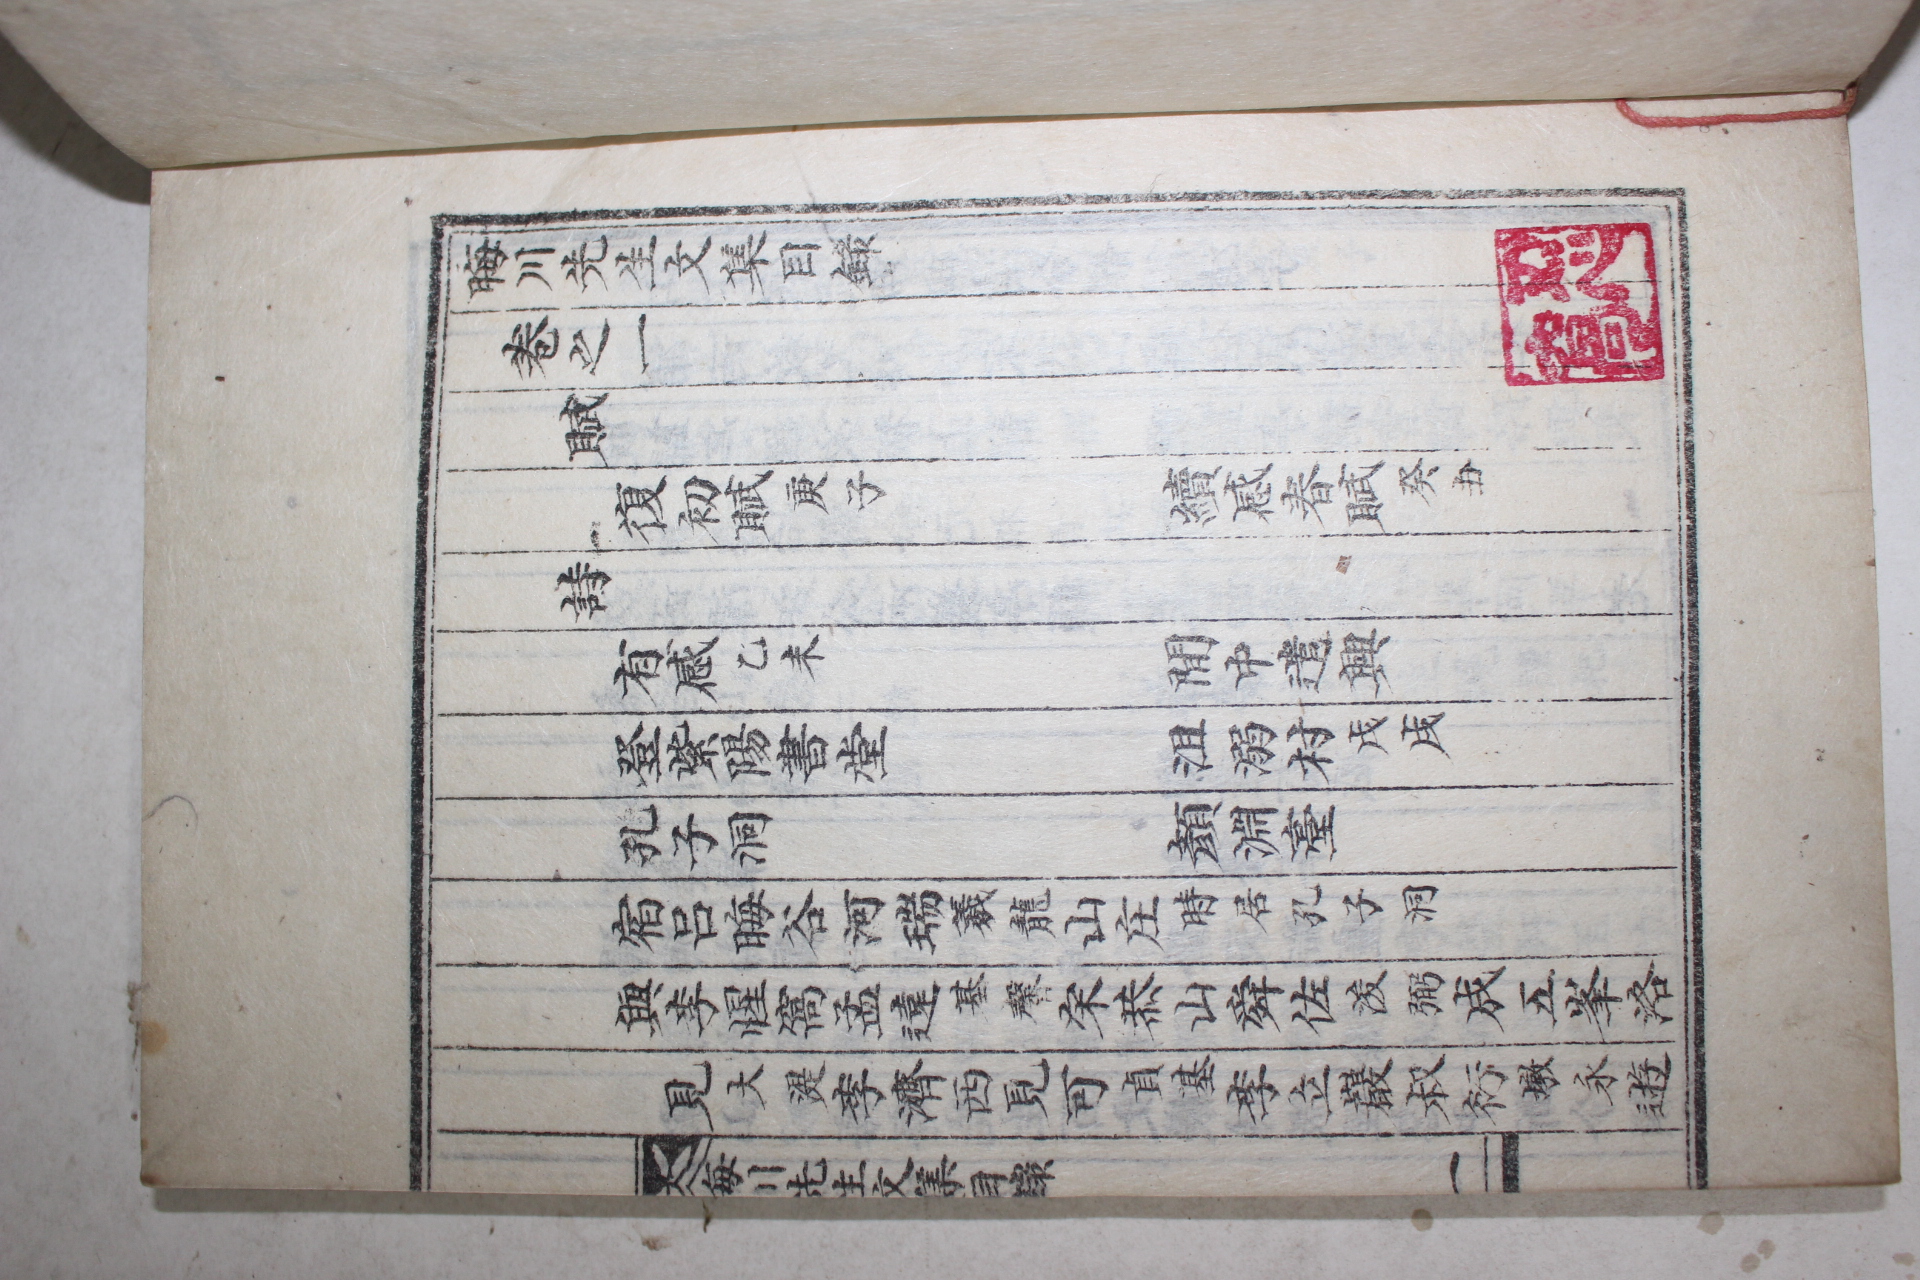 晦川先生文集目錄
卷之一
賦
復初賦庚子 續感春賦癸丑
詩
有感乙未 閒中遣興
登紫陽書堂 沮溺村戊戌
孔子洞 顏淵臺
宿呂晦谷河瑞羲龍山庄時居孔子洞
與李惺窩孟遠基馨宋恭山舜佐浚弼成五峯洛
見大湜李濟西見可貞基李立巖叔衍墩永遊
晦川先生文集目錄
一
忍窩